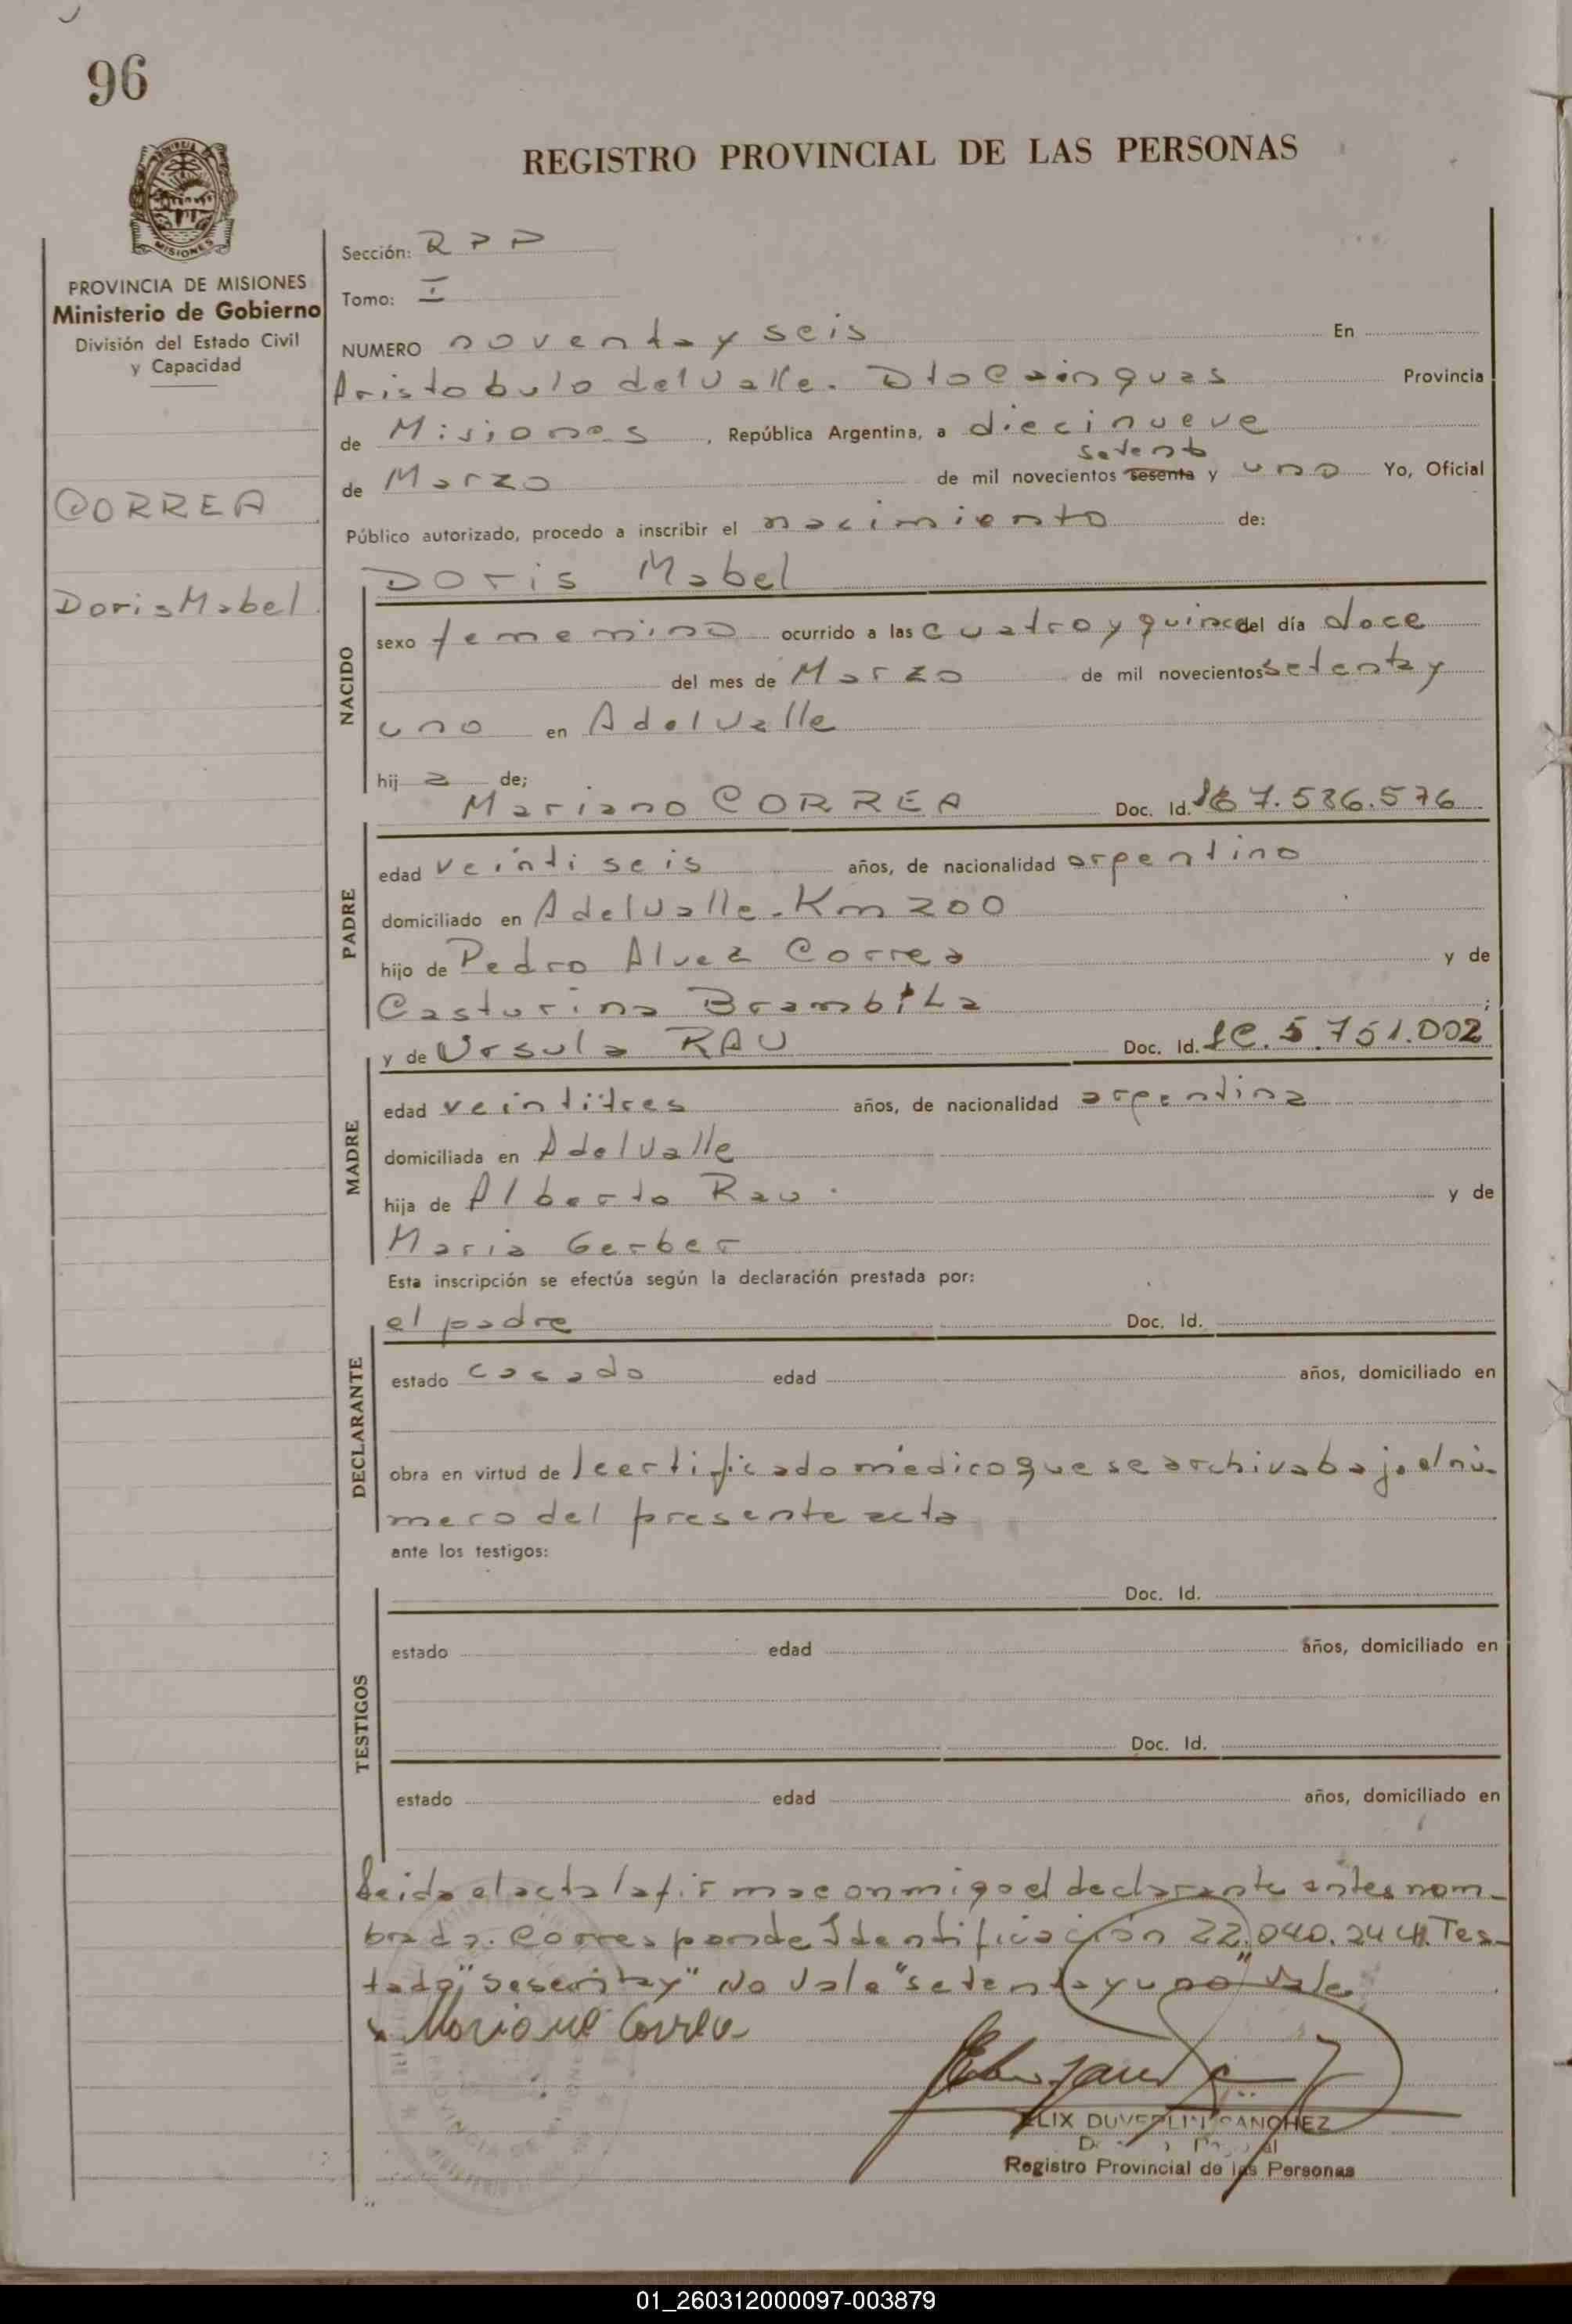 96
REGISTRO PROVINCIAL DE LAS PERSONAS
MISIONES
PROVINCIA DE MISIONES
Ministerio de Gobierno
División del Estado Civil
y Capacidad
CORREA
Doris Mabel
Sección: RPP
Tomo: I
NUMERO noventa y seis En
Aristobulo del Valle. Dto Cainguas Provincia
de Misiones, República Argentina, a diecinueve
setenta
de Marzo de mil novecientos sesenta y uno Yo, Oficial
Público autorizado, procedo a inscribir el nacimiento de:
Doris Mabel
NACIDO
sexo femenino ocurrido a las cuatro y quince del día doce
del mes de Marzo de mil novecientos setenta y
uno en A del Valle
hija de;
Mariano CORREA Doc. Id. 7.586.576
PADRE
edad veintiseis años, de nacionalidad argentino
domiciliado en A del Valle. Km 200
hijo de Pedro Alvez Correa y de
Casturina Brambila;
y de Ursula RAU Doc. Id. LC. 5.751.002
MADRE
edad veintitres años, de nacionalidad argentina
domiciliada en A del Valle
hija de Alberto Rau. y de
Maria Gerber
Esta inscripción se efectúa según la declaración prestada por:
el padre Doc. Id.
DECLARANTE
estado casado edad años, domiciliado en
obra en virtud de l certificado médico que se archiva bajo el nú-
mero del presente acta
ante los testigos:
Doc. Id.
TESTIGOS
estado edad años, domiciliado en
Doc. Id.
estado edad años, domiciliado en
Leida el acta la firma conmigo el declarante antes nom-
brado. Corresponde Identificación 22.040.244. Tes-
tado "sesenta y" No Vale "setenta y uno" Vale
Mariano Correa
ELIX DUVERLIN SANCHEZ
Registro Provincial de las Personas
01_260312000097-003879